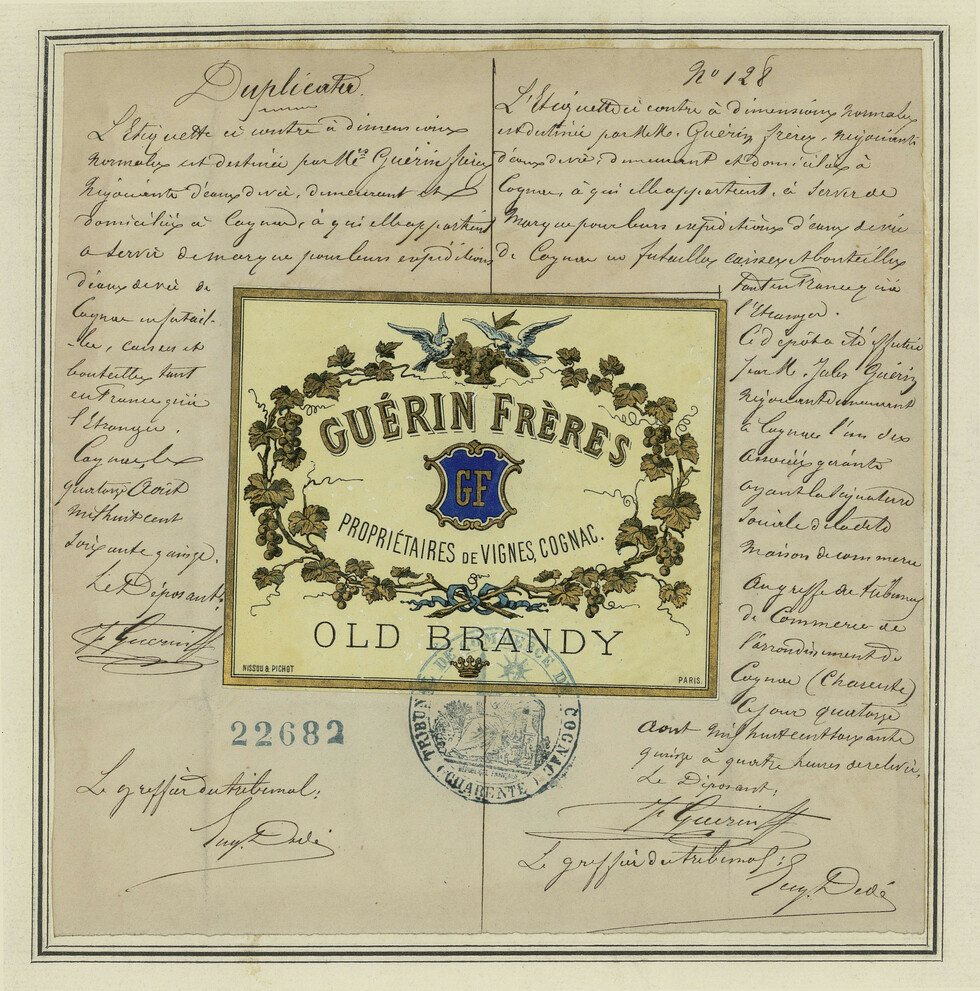 Duplicata.
L'Etiquette ci contre à dimensions
normales est destinée par M.rs Guérin frères
Négociants d'eaux de vie, demeurant et
domiciliés à Cognac, à qui elle appartient
a servir de marque pour leurs expéditions
d'eaux de vie de
Cognac en futail-
les, caisses et
bouteilles tant
en France qu'à
l'Etranger.
Cognac, le
quatorze Août
mil huit cent
soixante quinze.
Le Déposant:
J. Guerin ff
22682
Le greffier du tribunal:
Eug. Dedé
No 128
L'Etiquette ci contre à dimensions normales
est destinée par MM. Guérin frères, négociants
d'eaux de vie, demeurant et domiciliés à
Cognac, à qui elle appartient, à servir de
Marque pour leurs expéditions d'eaux de vie
de Cognac en futailles caisses et bouteilles
tant en France qu'à
l'Etranger.
Ce dépôt a été effectué
par M. Jules Guérin
négociant demeurant
à Cognac l'un des
associés gérants
ayant la signature
sociale de la dite
maison de commerce
au greffe du tribunal
de Commerce de
l'arrondissement de
Cognac (Charente)
ce jour quatorze
aout mil huit cent soixante
quinze à quatre heures de relevée.
Le Déposant:
J. Guerin ff
Le greffier du tribunal:
Eug. Dedé
GUÉRIN FRÈRES
GF
PROPRIÉTAIRES DE VIGNES, COGNAC.
OLD BRANDY
NISSOU & PICHOT
PARIS.
TRIBUNAL DE COMMERCE DE COGNAC
RÉPUBLIQUE FRANÇAISE
CHARENTE